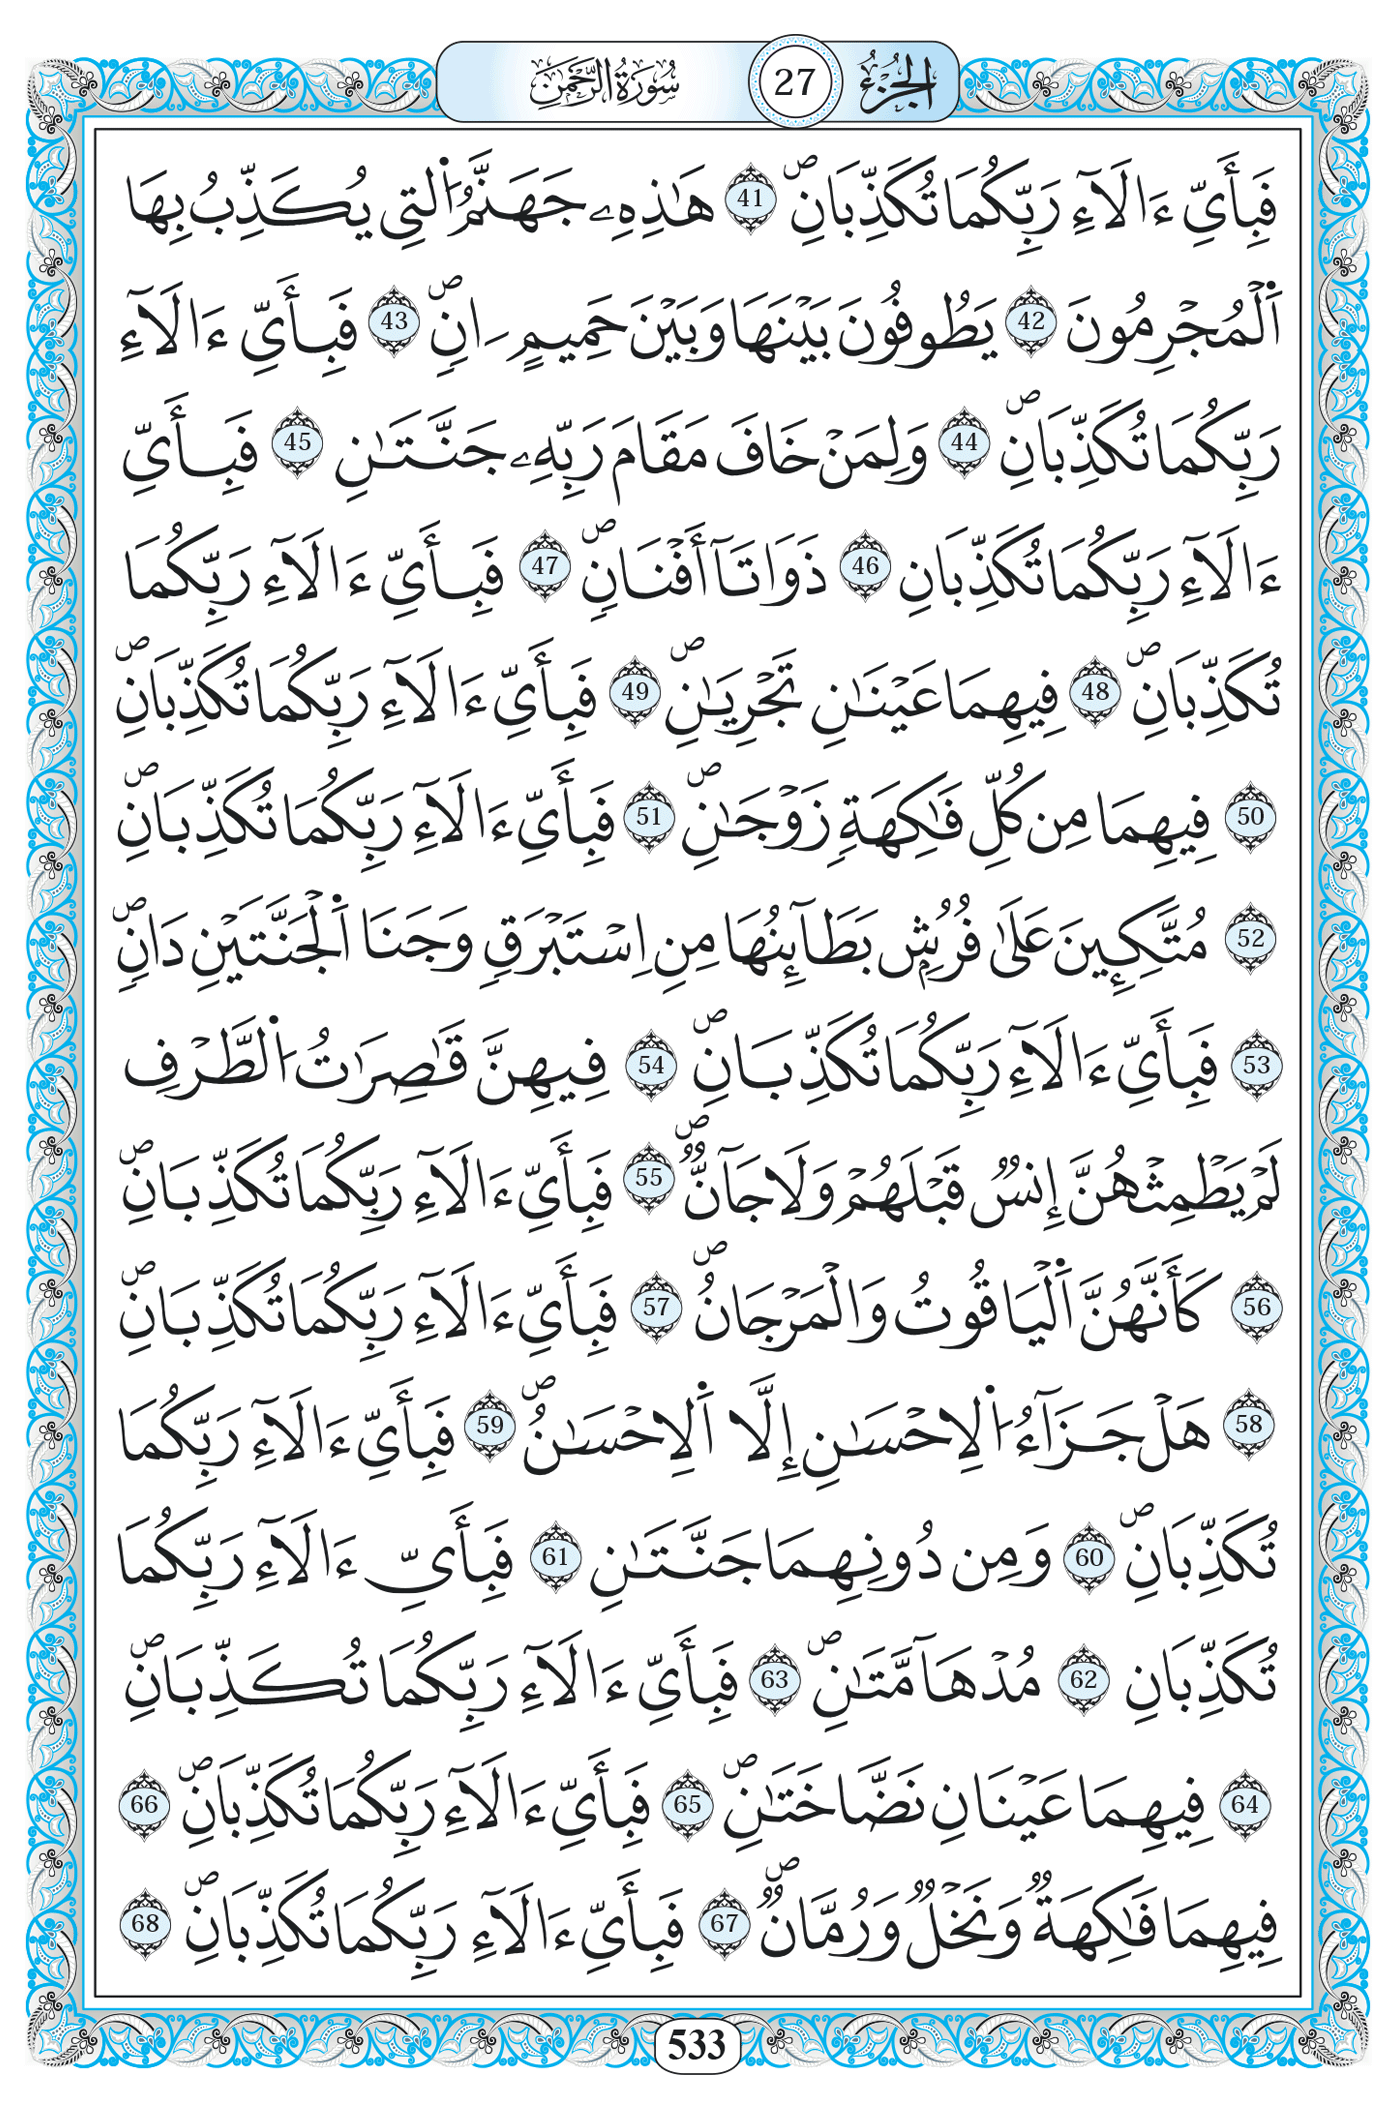 سُورَةُ الرَّحْمَٰن 27 الجُزْءُ
فَبِأَيِّ ءَالَآءِ رَبِّكُمَا تُكَذِّبَانِۖ 41 هَٰذِهِۦ جَهَنَّمُ اُ۬لتِي يُكَذِّبُ بِهَا
اَ۬لْمُجْرِمُونَ 42 يَطُوفُونَ بَيْنَهَا وَبَيْنَ حَمِيمٍ ءَانٖۖ 43 فَبِأَيِّ ءَالَآءِ
رَبِّكُمَا تُكَذِّبَانِۖ 44 وَلِمَنْ خَافَ مَقَامَ رَبِّهِۦ جَنَّتَٰنِ 45 فَبِأَيِّ
ءَالَآءِ رَبِّكُمَا تُكَذِّبَانِ 46 ذَوَاتَآ أَفْنَانٖۖ 47 فَبِأَيِّ ءَالَآءِ رَبِّكُمَا
تُكَذِّبَانِۖ 48 فِيهِمَا عَيْنَٰنِ تَجْرِيَٰنِۖ 49 فَبِأَيِّ ءَالَآءِ رَبِّكُمَا تُكَذِّبَانِۖ
50 فِيهِمَا مِن كُلِّ فَٰكِهَةٖ زَوْجَٰنِۖ 51 فَبِأَيِّ ءَالَآءِ رَبِّكُمَا تُكَذِّبَانِۖ
52 مُتَّكِـِٕينَ عَلَىٰ فُرُشِۢ بَطَآئِنُهَا مِنِ اِسْتَبْرَقٖ وَجَنَا اَ۬لْجَنَّتَيْنِ دَانٖۖ
53 فَبِأَيِّ ءَالَآءِ رَبِّكُمَا تُكَذِّبَانِۖ 54 فِيهِنَّ قَٰصِرَٰتُ اُ۬لطَّرْفِ
لَمْ يَطْمِثْهُنَّ إِنسٞ قَبْلَهُمْ وَلَا جَآنّٞۖ 55 فَبِأَيِّ ءَالَآءِ رَبِّكُمَا تُكَذِّبَانِۖ
56 كَأَنَّهُنَّ اَ۬لْيَاقُوتُ وَالْمَرْجَانُۖ 57 فَبِأَيِّ ءَالَآءِ رَبِّكُمَا تُكَذِّبَانِۖ
58 هَلْ جَزَآءُ اُ۬لِاحْسَٰنِ إِلَّا اَ۬لِاحْسَٰنُۖ 59 فَبِأَيِّ ءَالَآءِ رَبِّكُمَا
تُكَذِّبَانِۖ 60 وَمِن دُونِهِمَا جَنَّتَٰنِ 61 فَبِأَيِّ ءَالَآءِ رَبِّكُمَا
تُكَذِّبَانِ 62 مُدْهَآمَّتَٰنِۖ 63 فَبِأَيِّ ءَالَآءِ رَبِّكُمَا تُكَذِّبَانِۖ
64 فِيهِمَا عَيْنَانِ نَضَّاخَتَٰنِۖ 65 فَبِأَيِّ ءَالَآءِ رَبِّكُمَا تُكَذِّبَانِۖ 66
فِيهِمَا فَٰكِهَةٞ وَنَخْلٞ وَرُمَّانٞۖ 67 فَبِأَيِّ ءَالَآءِ رَبِّكُمَا تُكَذِّبَانِۖ 68
533